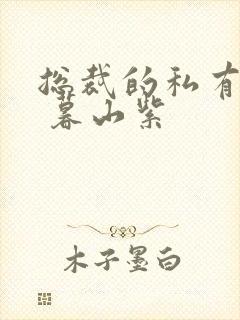 总裁的私有
暮山紫
木子墨白